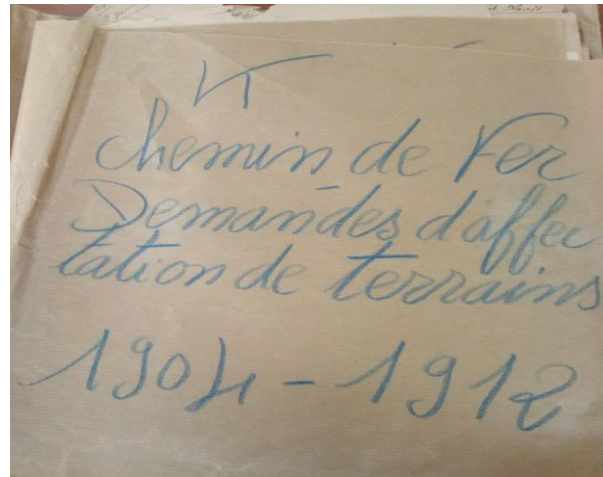 Chemin de Fer
Demandes d'affec
tation de terrains
1904 - 1912